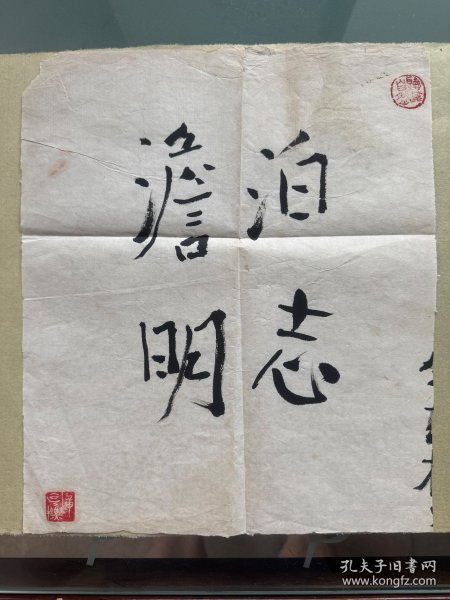 澹泊
明志
孔夫子旧书网
www.kongfz.com